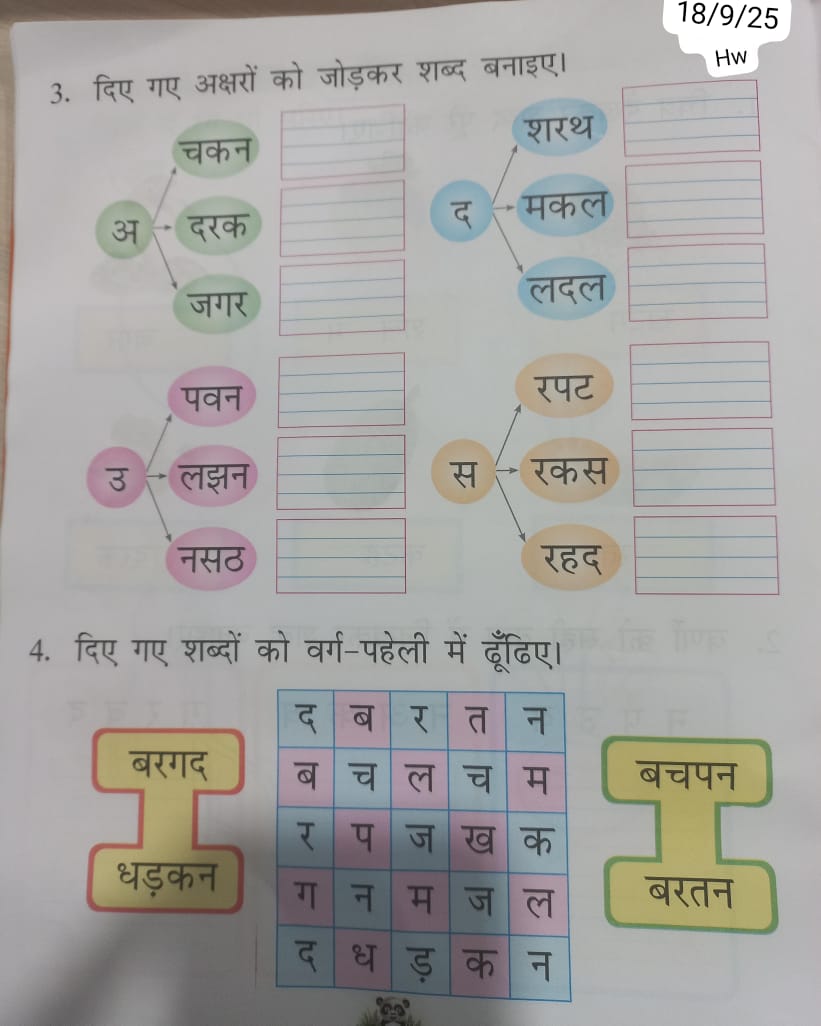 18/9/25
Hw
3. दिए गए अक्षरों को जोड़कर शब्द बनाइए।
अ
चकन
दरक
जगर
द
शरथ
मकल
लदल
उ
पवन
लझन
नसठ
स
रपट
रकस
रहद
4. दिए गए शब्दों को वर्ग-पहेली में ढूँढिए।
बरगद
धड़कन
द ब र त न
ब च ल च म
र प ज ख क
ग न म ज ल
द ध ड़ क न
बचपन
बरतन